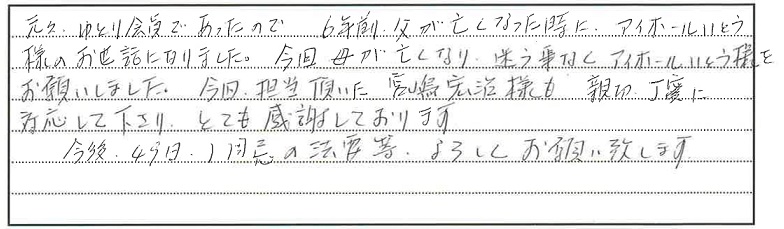 元々、ゆとり会員であったので 6年前、父が亡くなった時に、アイホールいとう
様のお世話になりました。今回 母が亡くなり、迷う事なくアイホールいとう様を
お願いしました。今回、担当頂いた 宮嶋宏治様も 親切、丁寧に
対応して下さり、とても感謝しております
今後、49日、1周忌の法要等、よろしくお願い致します